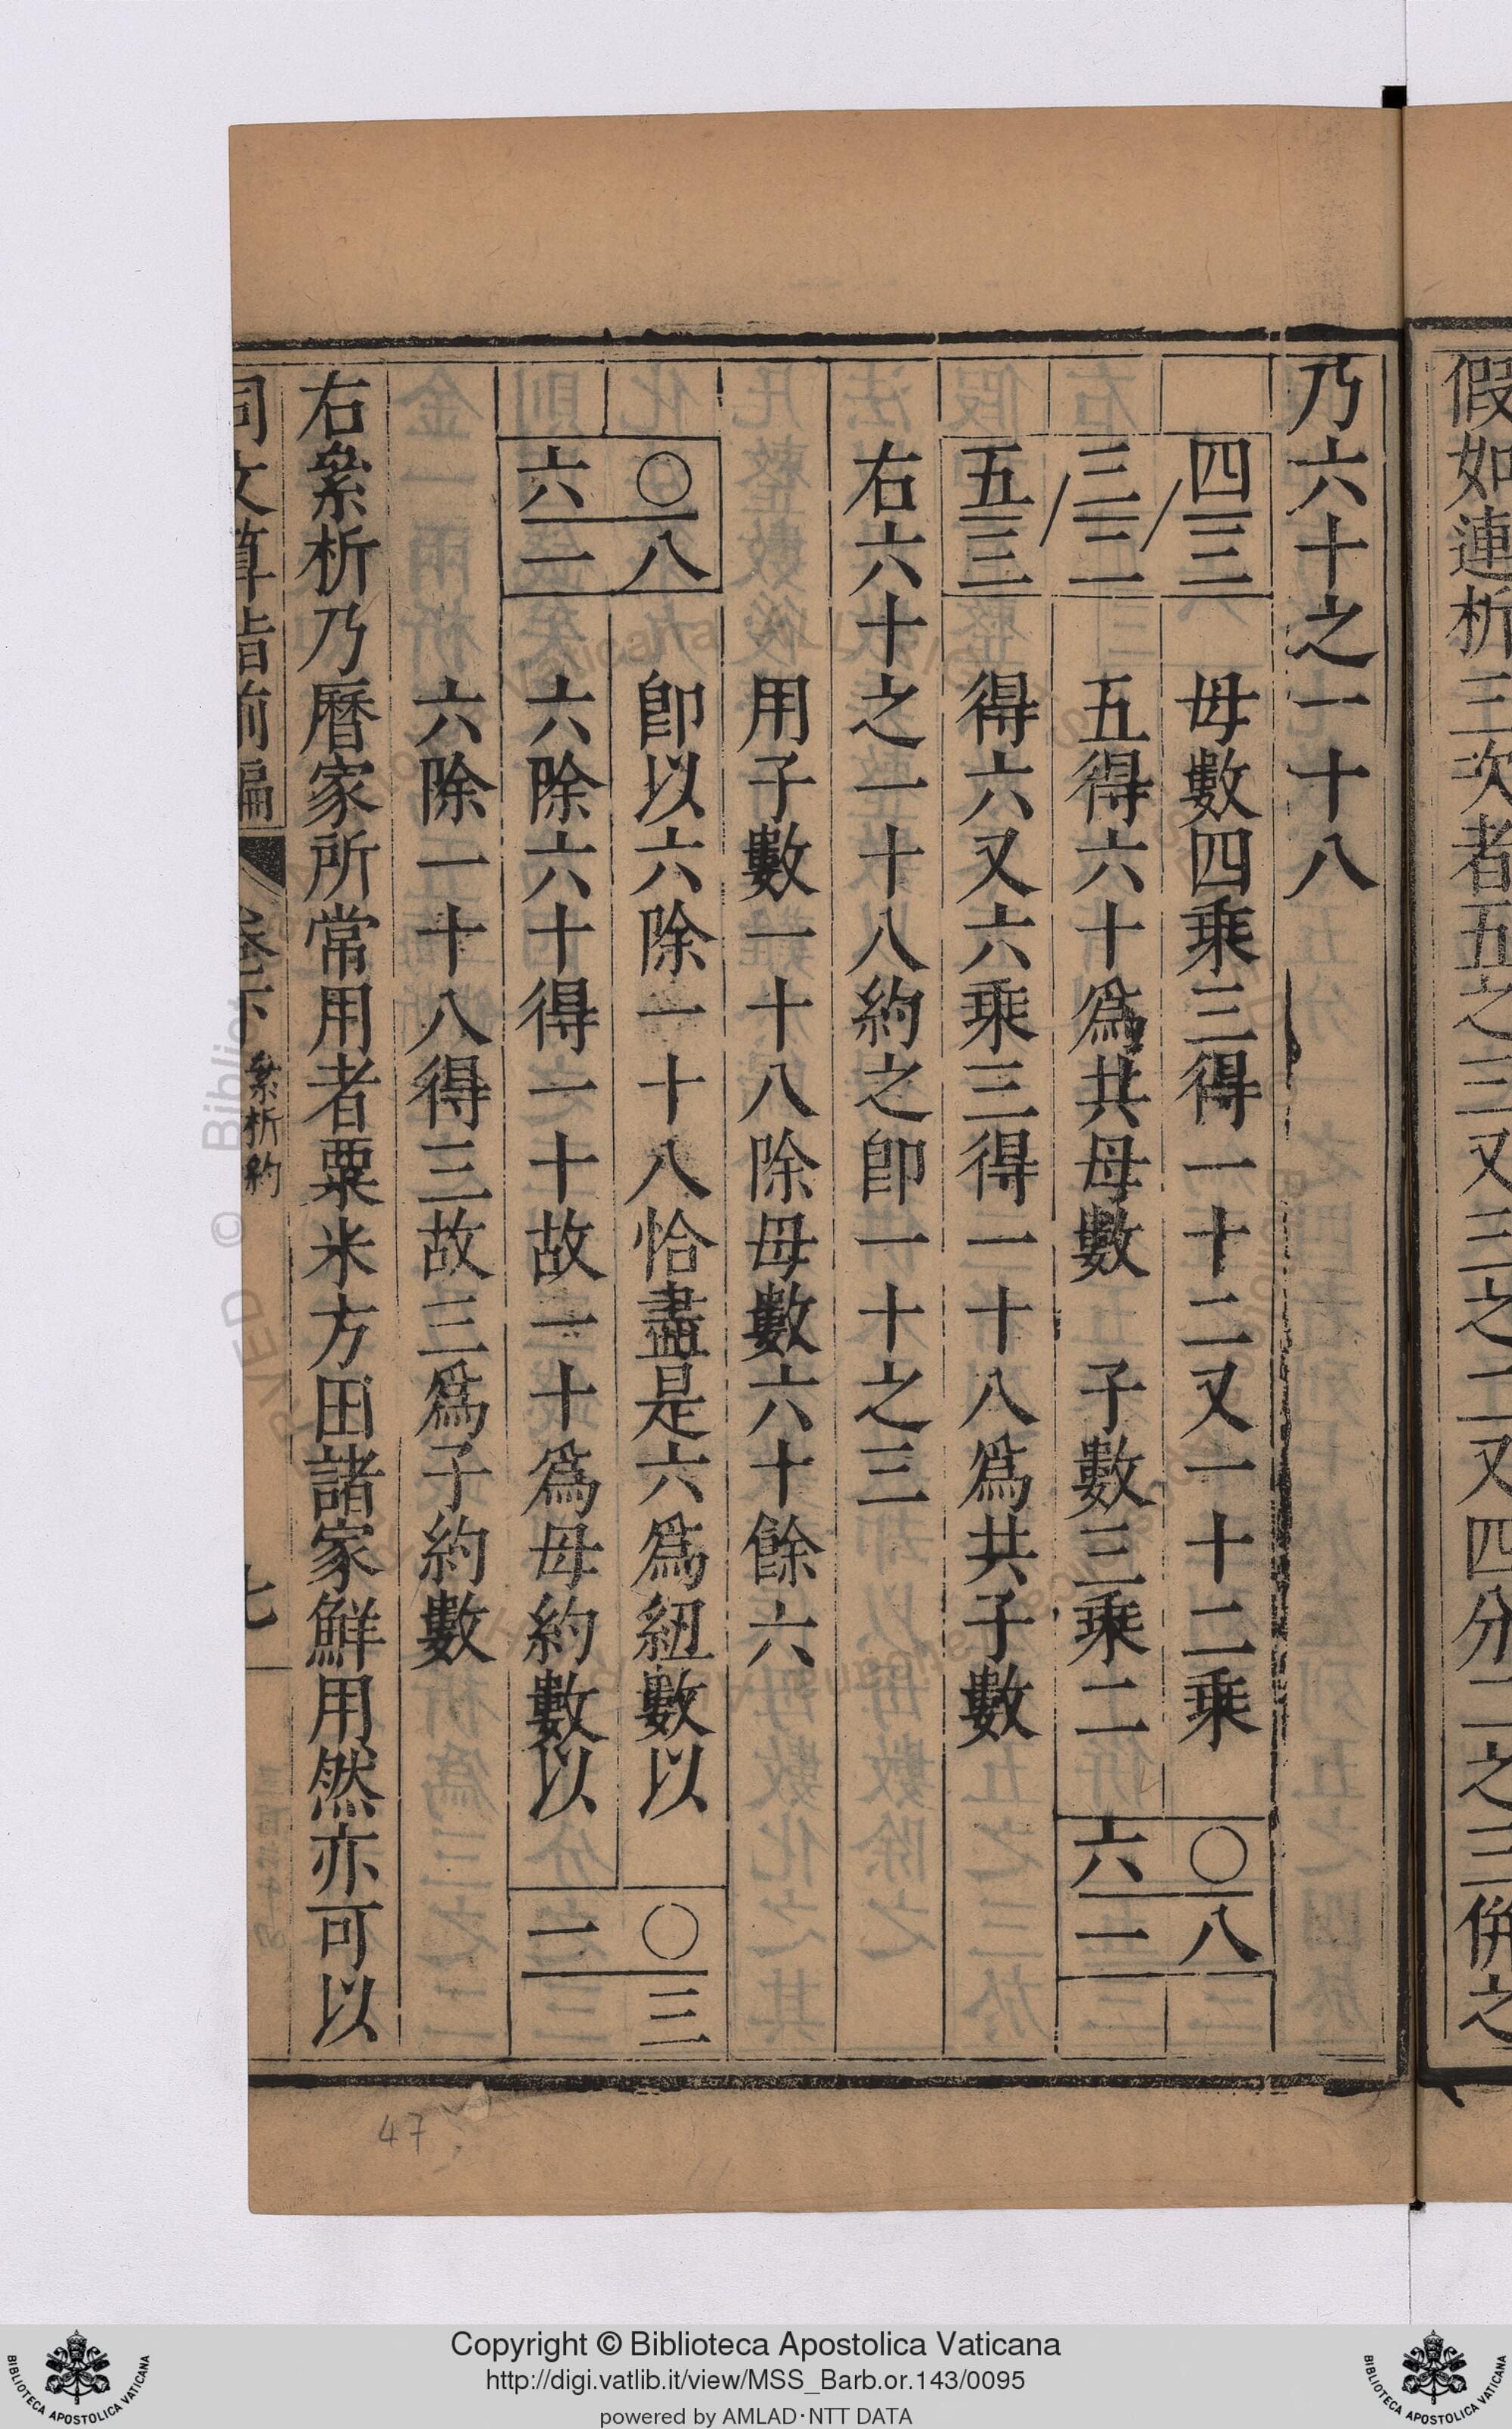 假如連析三次者五之三又三之二又四分二之三併之
乃六十之一十八
四三 母數四乘三得一十二又一十二乘 〇八
三二 五得六十爲共母數 子數三乘二 六一
五三 得六又六乘三得一十八爲共子數
右六十之一十八約之卽一十之三
用子數一十八除母數六十餘六
〇八 卽以六除一十八恰盡是六爲紐數以 〇三
六一 六除六十得一十故一十爲母約數以 一
六除一十八得三故三爲子約數
右絫析乃曆家所常用者粟米方田諸家鮮用然亦可以
同文算指前編 卷下 絫析約 七
47
Copyright © Biblioteca Apostolica Vaticana
http://digi.vatlib.it/view/MSS_Barb.or.143/0095
powered by AMLAD·NTT DATA
BIBLIOTECA APOSTOLICA VATICANA
BIBLIOTECA APOSTOLICA VATICANA